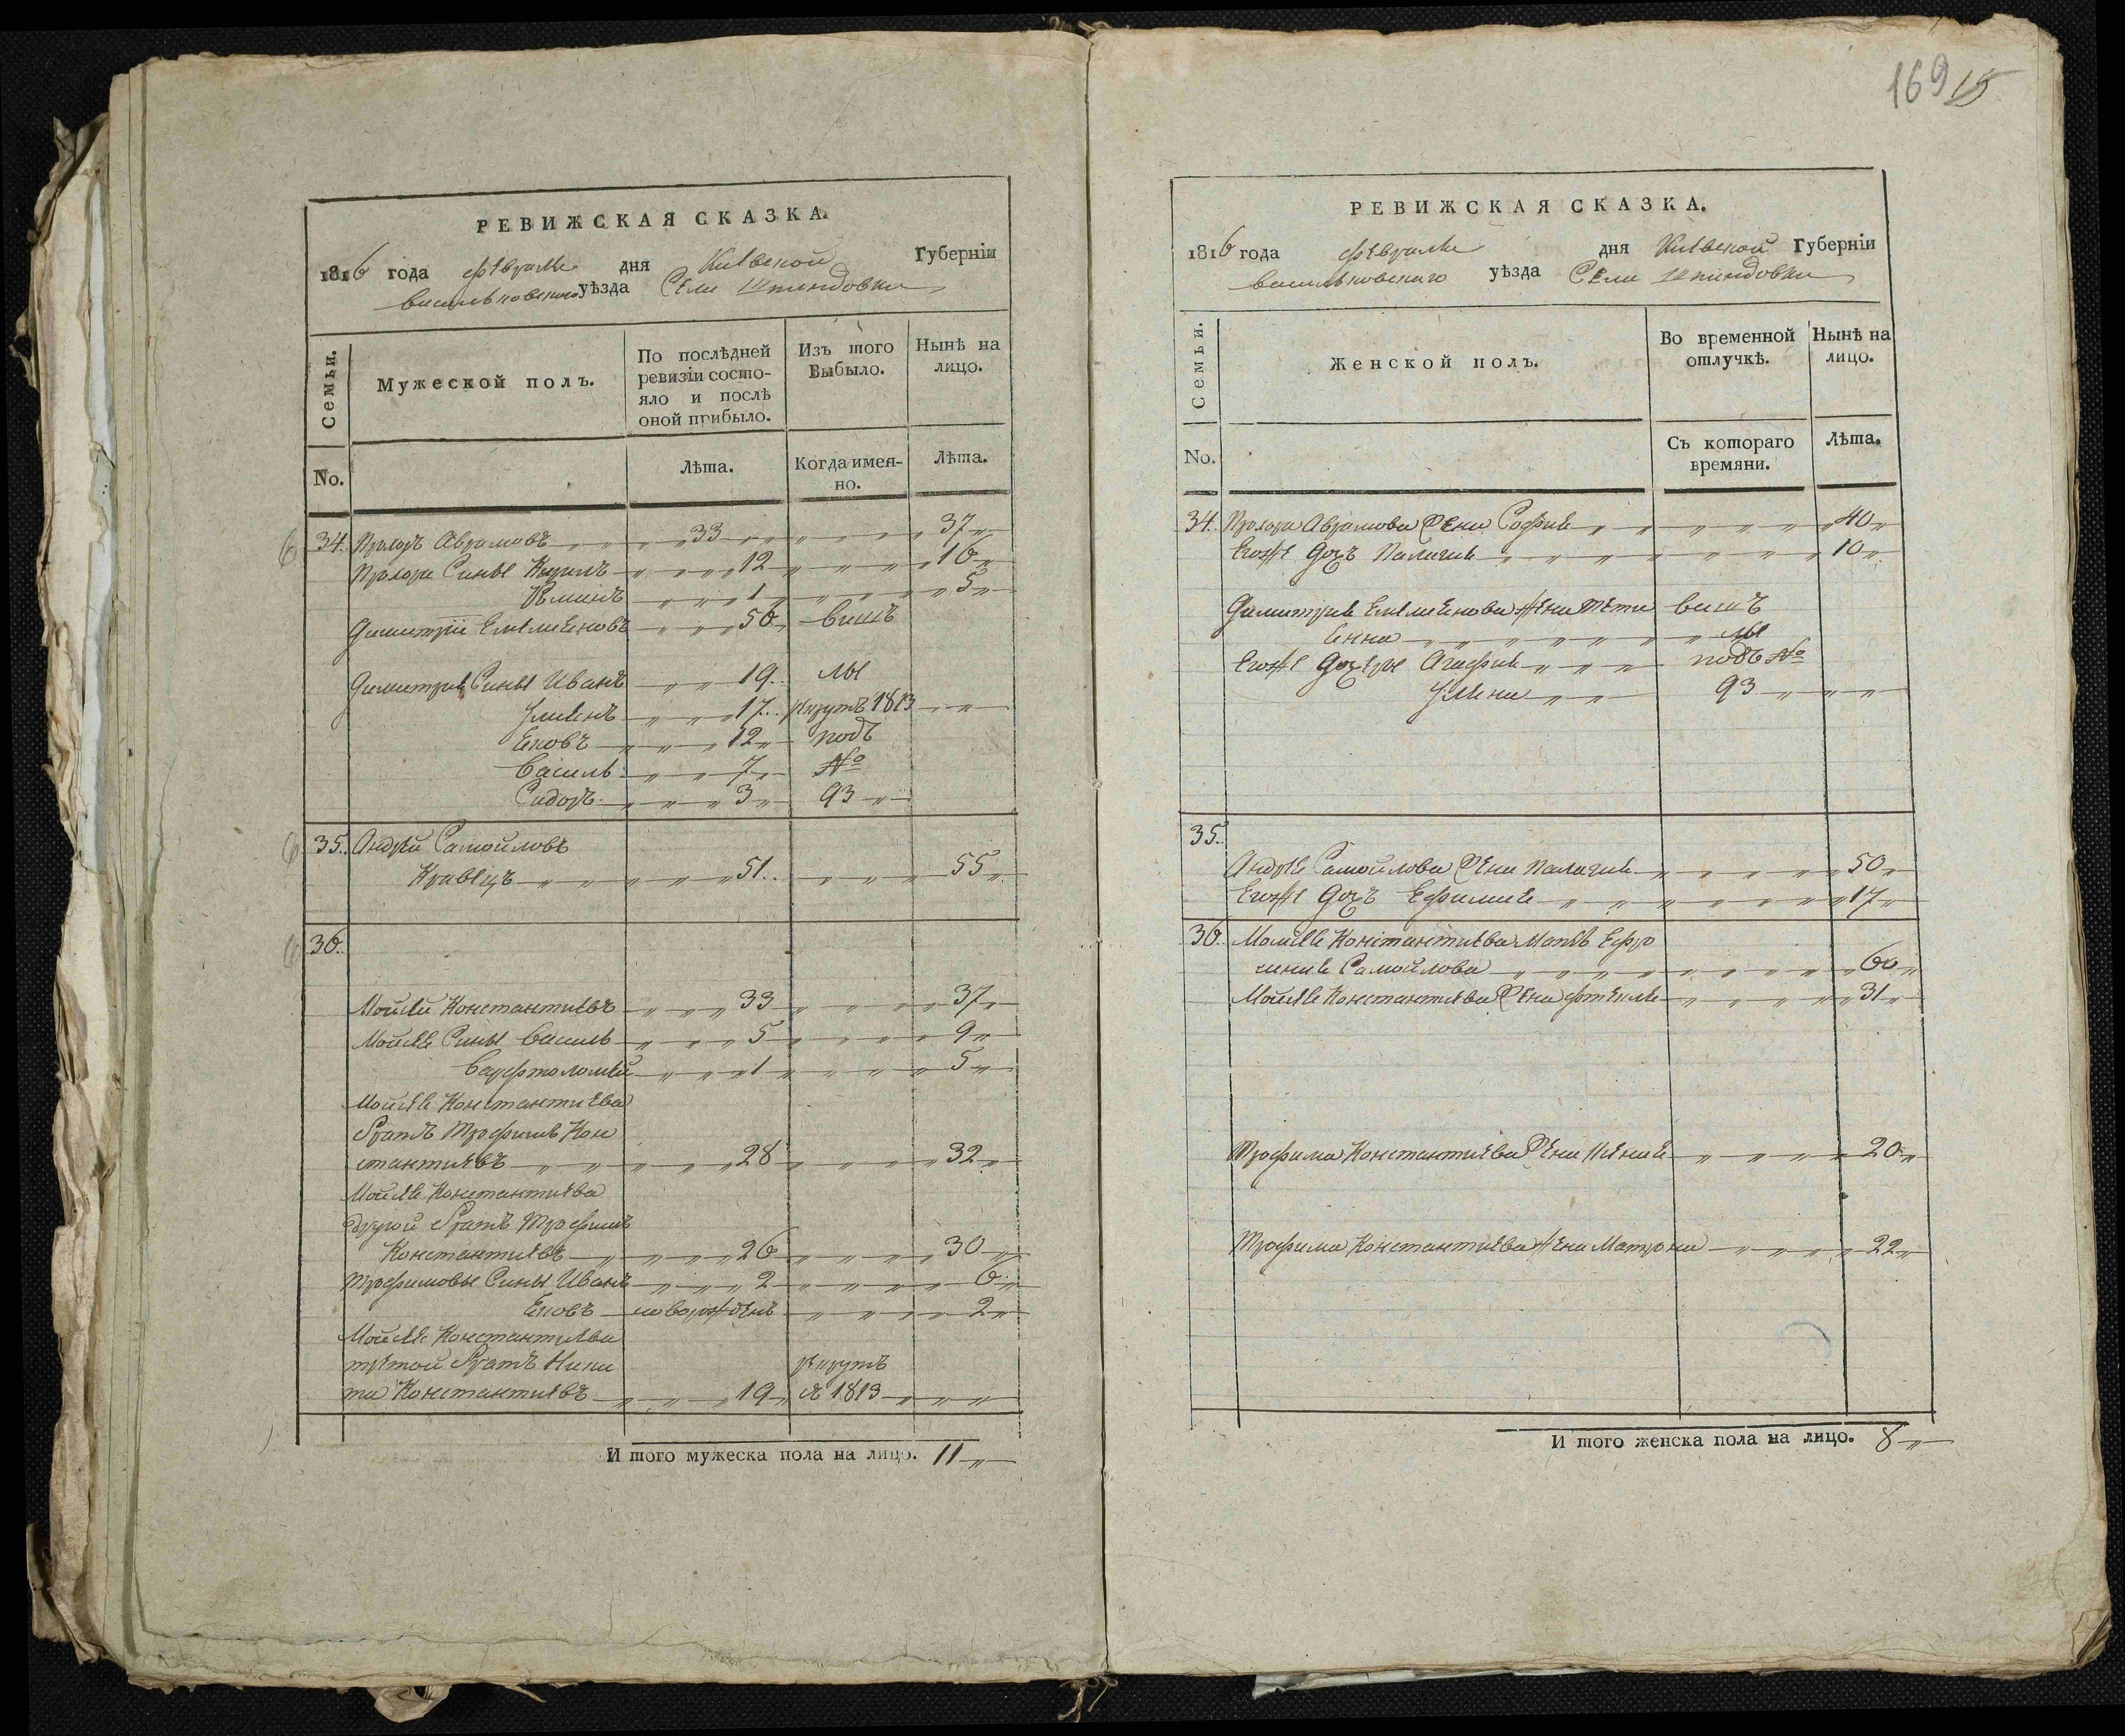 РЕВИЖСКАЯ СКАЗКА.
1816 года февраля дня Киевской Губерніи
васильковского уѣзда Села Шпендовки
Семьи.
Мужеской полъ.
По послѣдней ревизіи состояло и послѣ оной прибыло.
Изъ того Выбыло.
Нынѣ на лицо.
No.
Лѣта.
Когда имен-
но.
Лѣта.
34. Прохоръ Аврамовъ 33 37
Прохора Сины Кирилъ 12 16
1 5
Димитрій Емелиеновъ 56 вишъ
Димитрие Сины Иванъ 19 лы
17 рекрутъ 1813
Ековъ 12 подъ
Василь 7 №
Сидоръ 3 93
35. Андрей Самойловъ
Кравецъ 51 55
36.
Мойсей Константиевъ 33 37
Мойсее Сины Василь 5 9
Варфтоломей 1 5
Мойсее Константиева
Братъ Трофимъ Кон
стантиевъ 28 32
Мойсее Константиева
другой Братъ Трофимъ
Константиевъ 26 30
Трофимовы Сины Иванъ 2 6
Ековъ новорожденъ 2
Мойсее Константиева
третой Братъ Ники рекрутъ
та Константиевъ 19 1813
И того мужеска пола на лицо. 11
169 15
РЕВИЖСКАЯ СКАЗКА.
1816 года февраля дня Киевской Губерніи
васильковского уѣзда Села Шпендовки
Семьи.
Женской полъ.
Во временной отлучкѣ.
Нынѣ на лицо.
No.
Съ котораго времяни.
Лѣта.
34. Прохора Аврамова Жена Софие 40
Егоже Дочъ Палагие 10
Димитрие Емелиенова жена Тети вишъ
енна лы
Егоже Дочери Агафие подъ №
93
35.
Андрее Самойлова Жена Палагие 50
Егоже Дочъ Ефимие 17
36. Мойсее Константиева Мать Ефро
синие Самойлова 60
Мойсее Константиева Жена фтекле 31
Трофима Константиева Жена 20
Трофима Константиева жена Матрона 22
И того женска пола на лицо. 8